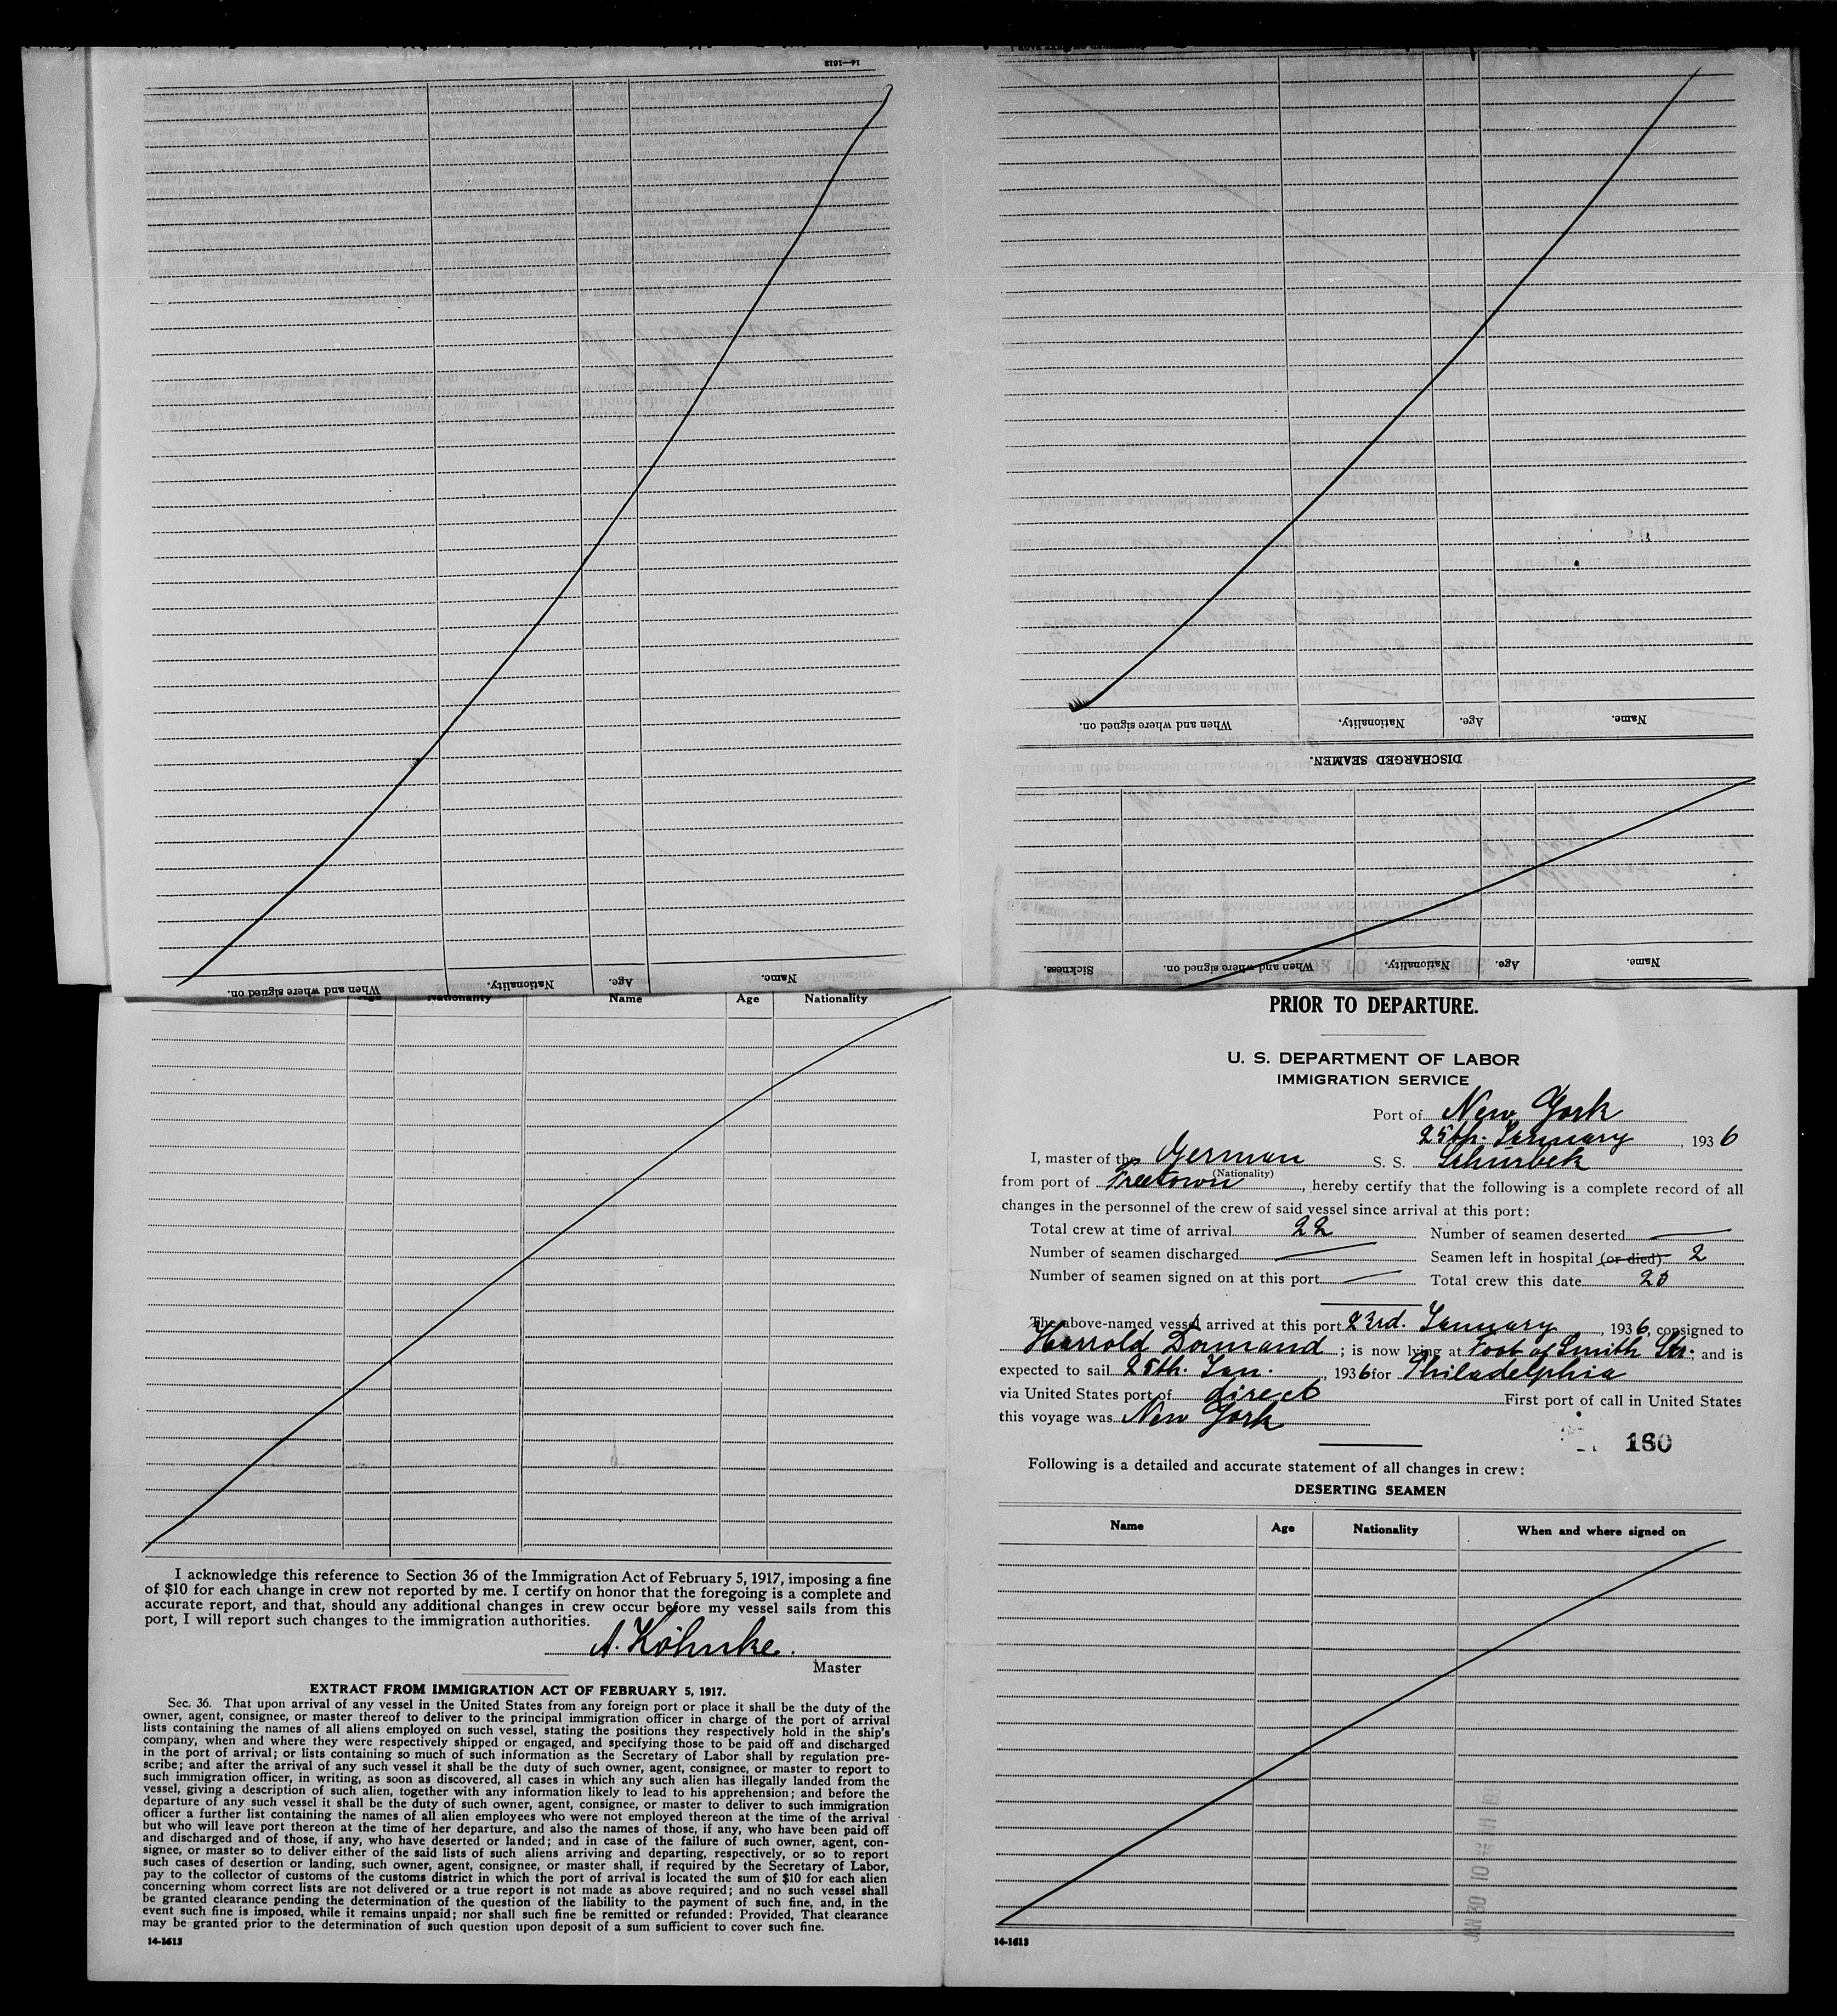 14—1613
When and where signed on.
Nationality.
Age.
Name.
DISCHARGED SEAMEN.
Name.
Age.
Nationality.
When and where signed on.
Name.
Age.
Nationality.
When and where signed on.
Sickness.
Age Nationality Name Age Nationality
I acknowledge this reference to Section 36 of the Immigration Act of February 5, 1917, imposing a fine
of $10 for each change in crew not reported by me. I certify on honor that the foregoing is a complete and
accurate report, and that, should any additional changes in crew occur before my vessel sails from this
port, I will report such changes to the immigration authorities.
A. Köhnke.
Master
EXTRACT FROM IMMIGRATION ACT OF FEBRUARY 5, 1917.
Sec. 36. That upon arrival of any vessel in the United States from any foreign port or place it shall be the duty of the
owner, agent, consignee, or master thereof to deliver to the principal immigration officer in charge of the port of arrival
lists containing the names of all aliens employed on such vessel, stating the positions they respectively hold in the ship's
company, when and where they were respectively shipped or engaged, and specifying those to be paid off and discharged
in the port of arrival; or lists containing so much of such information as the Secretary of Labor shall by regulation pre-
scribe; and after the arrival of any such vessel it shall be the duty of such owner, agent, consignee, or master to report to
such immigration officer, in writing, as soon as discovered, all cases in which any such alien has illegally landed from the
vessel, giving a description of such alien, together with any information likely to lead to his apprehension; and before the
departure of any such vessel it shall be the duty of such owner, agent, consignee, or master to deliver to such immigration
officer a further list containing the names of all alien employees who were not employed thereon at the time of the arrival
but who will leave port thereon at the time of her departure, and also the names of those, if any, who have been paid off
and discharged and of those, if any, who have deserted or landed; and in case of the failure of such owner, agent, con-
signee, or master so to deliver either of the said lists of such aliens arriving and departing, respectively, or so to report
such cases of desertion or landing, such owner, agent, consignee, or master shall, if required by the Secretary of Labor,
pay to the collector of customs of the customs district in which the port of arrival is located the sum of $10 for each alien
concerning whom correct lists are not delivered or a true report is not made as above required; and no such vessel shall
be granted clearance pending the determination of the question of the liability to the payment of such fine, and, in the
event such fine is imposed, while it remains unpaid; nor shall such fine be remitted or refunded: Provided, That clearance
may be granted prior to the determination of such question upon deposit of a sum sufficient to cover such fine.
14-1613
PRIOR TO DEPARTURE.
U. S. DEPARTMENT OF LABOR
IMMIGRATION SERVICE
Port of New York
25th. January, 1936
I, master of the German S. S. Schürbek
(Nationality)
from port of Freetown, hereby certify that the following is a complete record of all
changes in the personnel of the crew of said vessel since arrival at this port:
Total crew at time of arrival 22 Number of seamen deserted —
Number of seamen discharged — Seamen left in hospital (or died) 2
Number of seamen signed on at this port — Total crew this date 20
The above-named vessel arrived at this port 23rd. January, 1936, consigned to
Harrold Dormand; is now lying at Foot of Smith Str.; and is
expected to sail 25th. Jan., 1936 for Philadelphia
via United States port of direct First port of call in United States
this voyage was New York
180
Following is a detailed and accurate statement of all changes in crew:
DESERTING SEAMEN
Name Age Nationality When and where signed on
14-1613